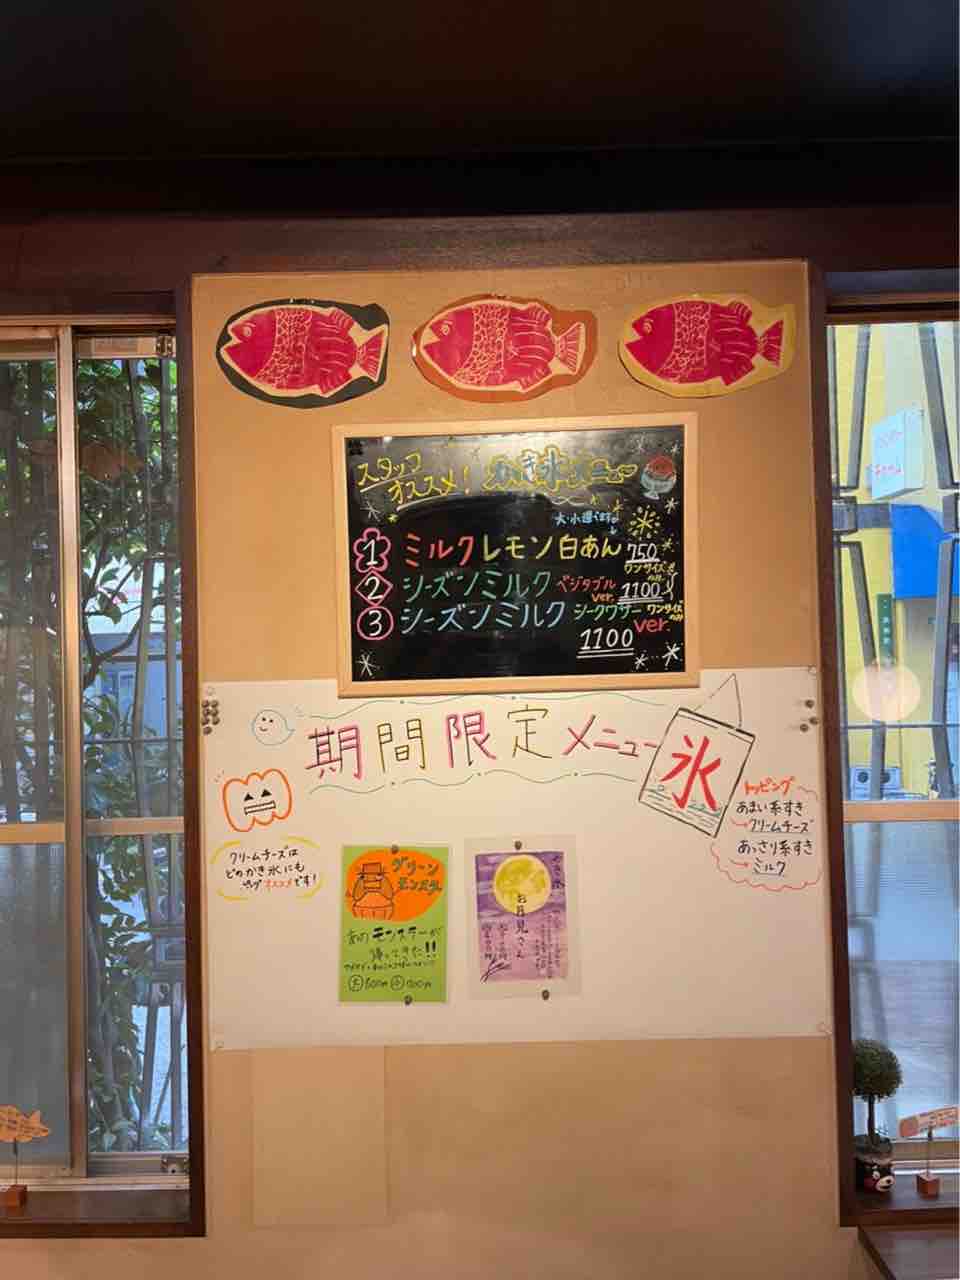 スタッフ
オススメ! かき氷メニュー
大・小選べます。
1 ミルクレモン白あん 750
ワンサイズのみ
2 シーズンミルク ベジタブル ver. 1100
3 シーズンミルク シークワサー ver. ワンサイズのみ
1100
期間限定メニュー
氷
トッピング
あまい系すき
→クリームチーズ
あっさり系すき
→ミルク
クリームチーズは
どのかき氷にも
オススメです!
グリーン
モンスター
あのモンスターが
帰ってきた!!
大 800円 小 700円
お月見さん